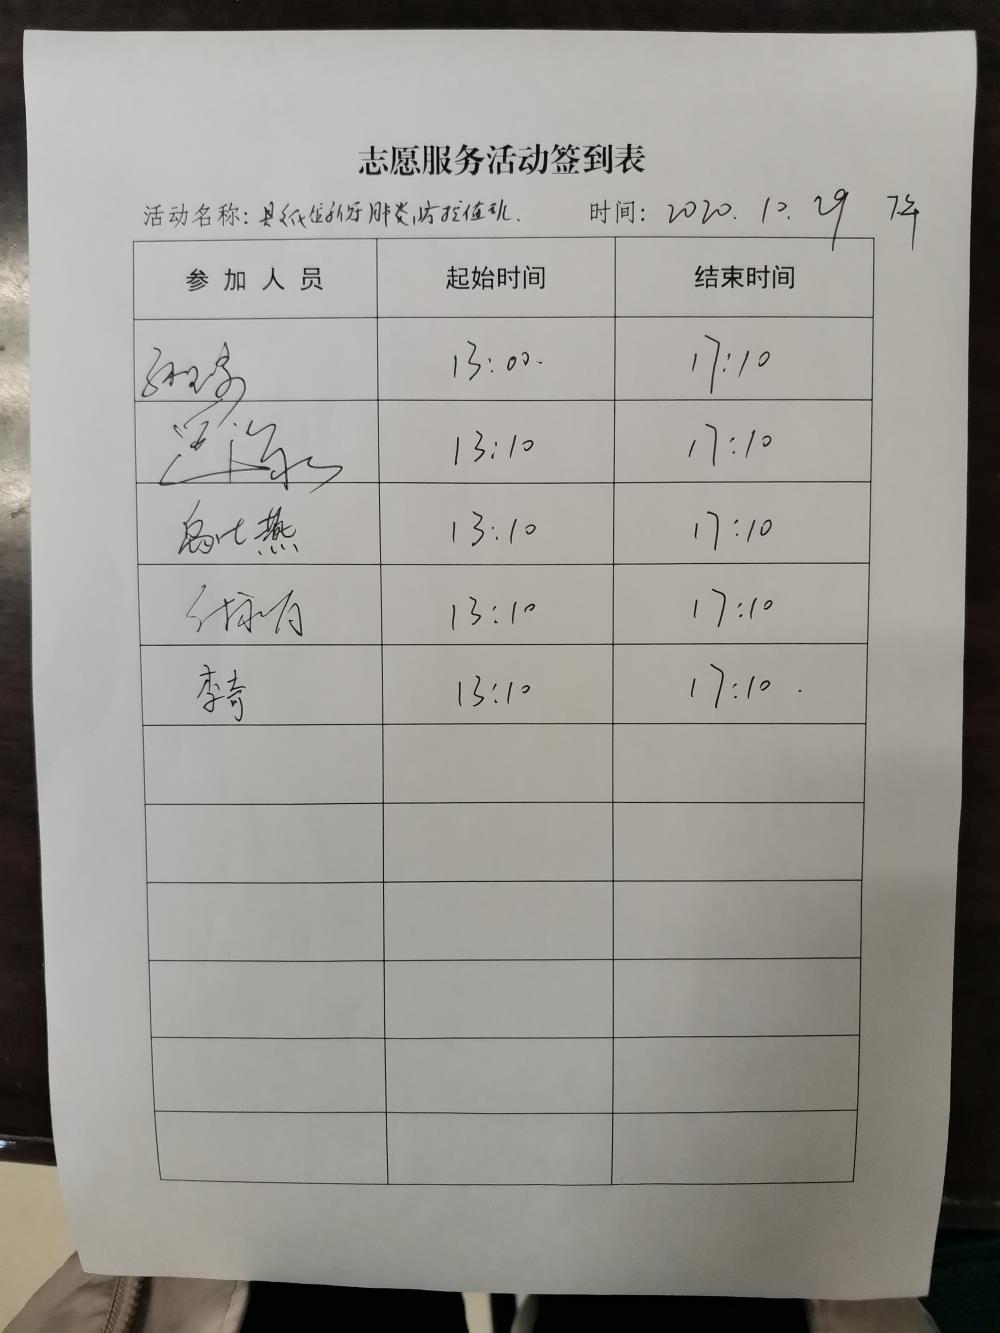 志愿服务活动签到表
活动名称：县纸住新冠肺炎防控值班. 时间：2020.10.29 下午
参加人员 起始时间 结束时间
13:00. 17:10
13:10 17:10
13:10 17:10
13:10 17:10
李奇 13:10 17:10.